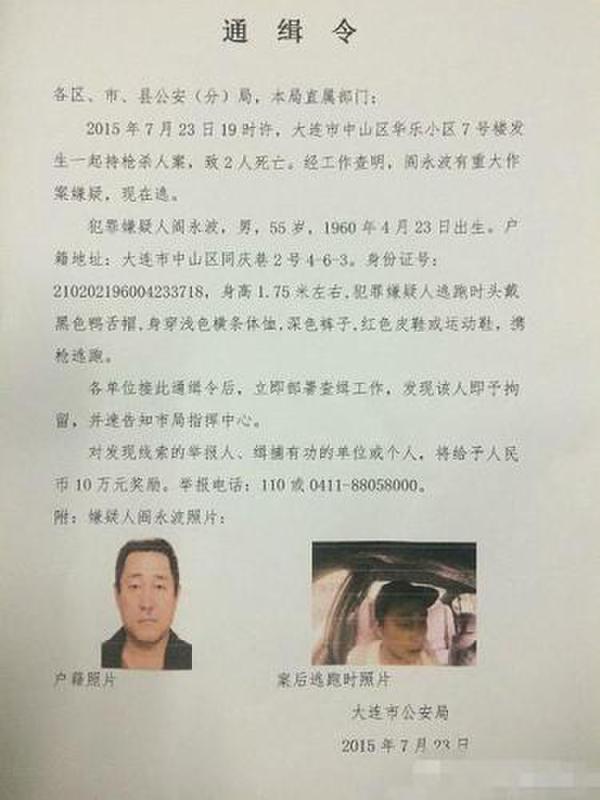 通缉令
各区、市、县公安（分）局，本局直属部门：
2015年7月23日19时许，大连市中山区华乐小区7号楼发
生一起持枪杀人案，致2人死亡。经工作查明，阎永波有重大作
案嫌疑，现在逃。
犯罪嫌疑人阎永波，男，55岁，1960年4月23日出生。户
籍地址：大连市中山区同庆巷2号4-6-3。身份证号：
210202196004233718，身高1.75米左右,犯罪嫌疑人逃跑时头戴
黑色鸭舌帽,身穿浅色横条体恤,深色裤子,红色皮鞋或运动鞋，携
枪逃跑。
各单位接此通缉令后，立即部署查缉工作，发现该人即予拘
留，并速告知市局指挥中心。
对发现线索的举报人、缉捕有功的单位或个人，将给予人民
币10万元奖励。举报电话：110或0411-88058000。
附：嫌疑人阎永波照片：
户籍照片
案后逃跑时照片
大连市公安局
2015年7月23日